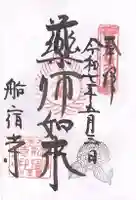 奉拝
令和七年五月三日
薬師如来
船宿寺